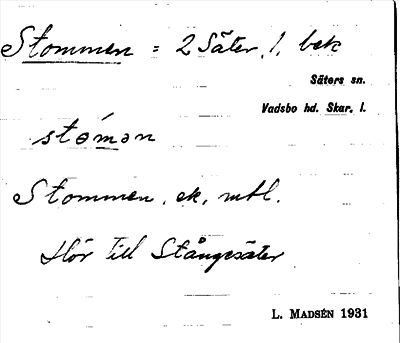 Stommen = 2 Säter, 1, bek
Säters sn.
Vadsbo hd. Skar. l.
stómən
Stommen, ek, mtl.
Hör till Stångesäter
L. MADSÉN 1931